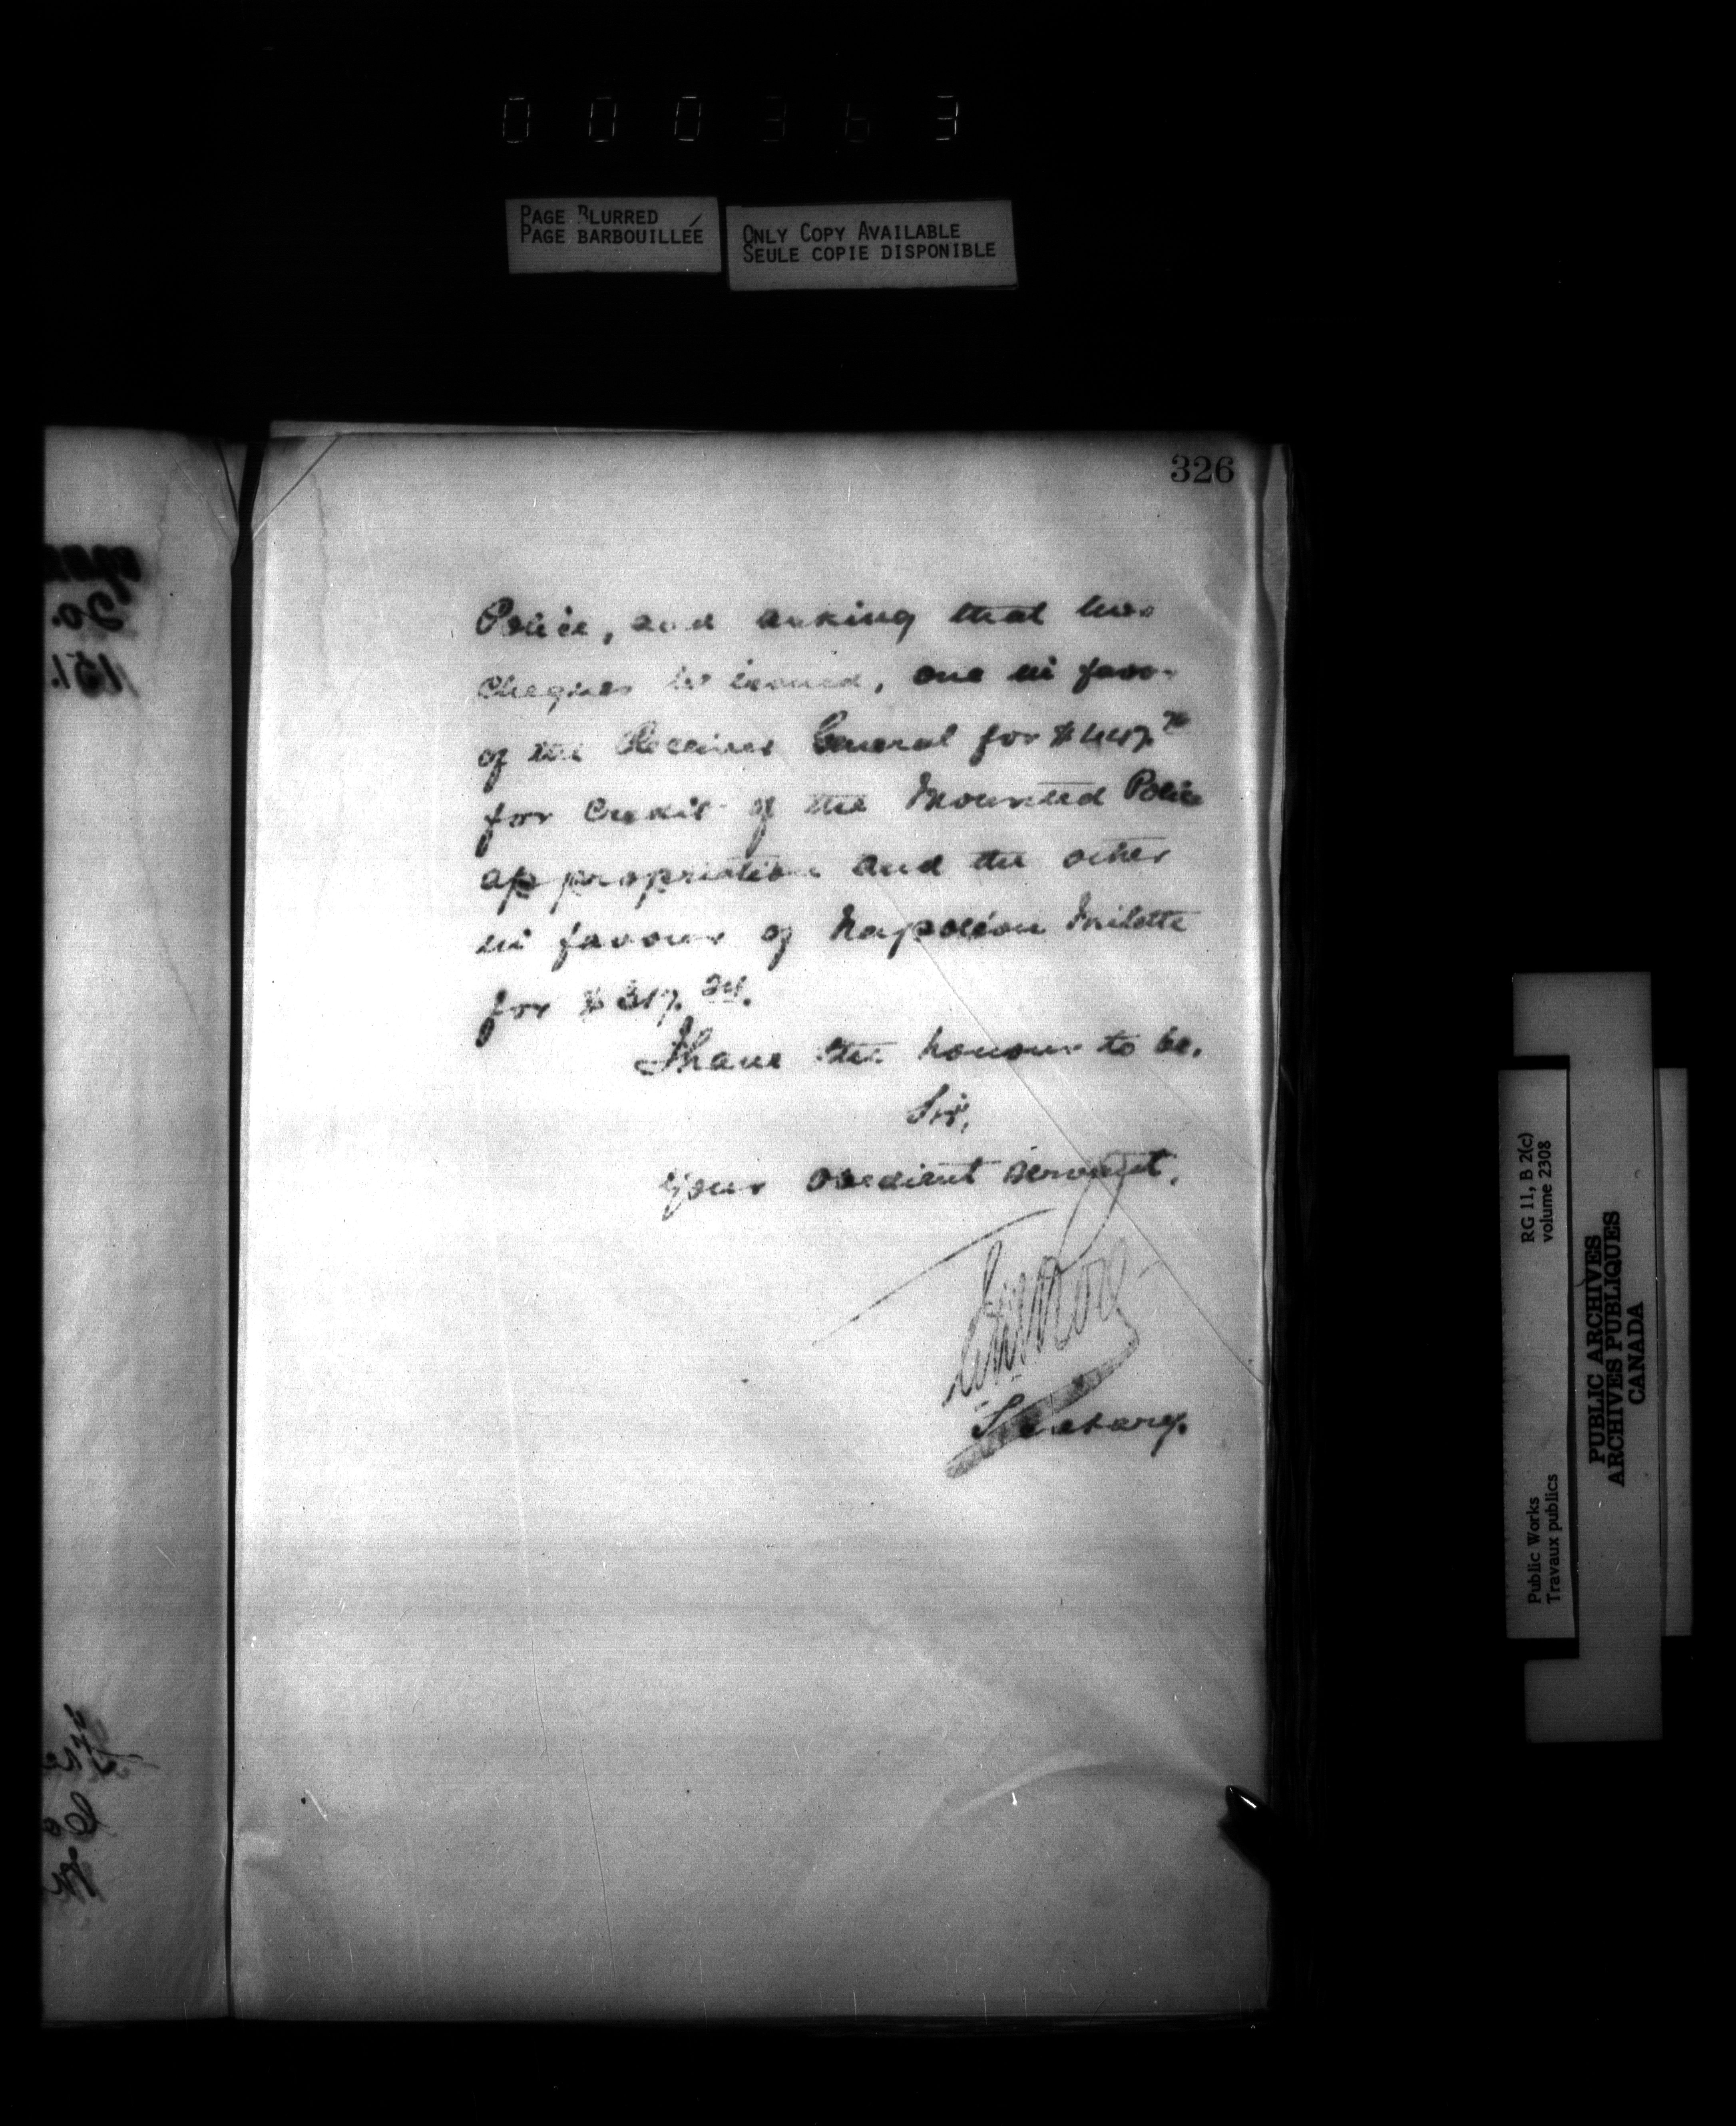 000363
PAGE BLURRED
PAGE BARBOUILLÉE
ONLY COPY AVAILABLE
SEULE COPIE DISPONIBLE
326
Police, and asking that two
cheques be issued, one in favor
of the Receiver General for
for credit of the Mounted Police
appropriation and the other
in favour of Napoléon Milette
for $317.24.
I have the honour to be,
Sir,
Your obedient servant,
Secretary.
20.
151.
Public Works
Travaux publics
RG 11, B 2(c)
volume 2308
PUBLIC ARCHIVES
ARCHIVES PUBLIQUES
CANADA